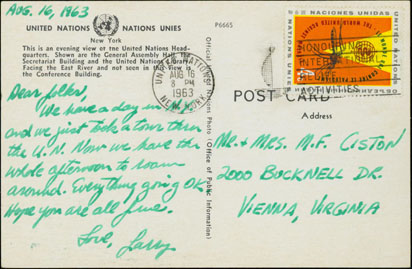 AUG. 16, 1963
UNITED NATIONS NATIONS UNIES
New York
This is an evening view of the United Nations Head-
quarters. Shown are the General Assembly Hall,
Secretariat Building and the United Nations Library.
Facing the East River and not seen in this view is
the Conference Building.
Dear folks,
We have a day in
and we just took a tour thru
the U.N. Now we have the
whole afternoon to roam
around. Everything going OK.
Hope you are all fine.
Love, Larry
P6665
Official United Nations Photo (Office of Public Information)
UNITED NATIONS
AUG 16
8 PM
1963
NEW YORK
NACIONES UNIDAS
NATIONS UNIES
UNITED NATIONS
HONOURING
INTERNATIONAL
ACTIVITIES
POST CARD
Address
Mr. & Mrs. M.F. Ciston
2000 Bucknell Dr.
Vienna, Virginia